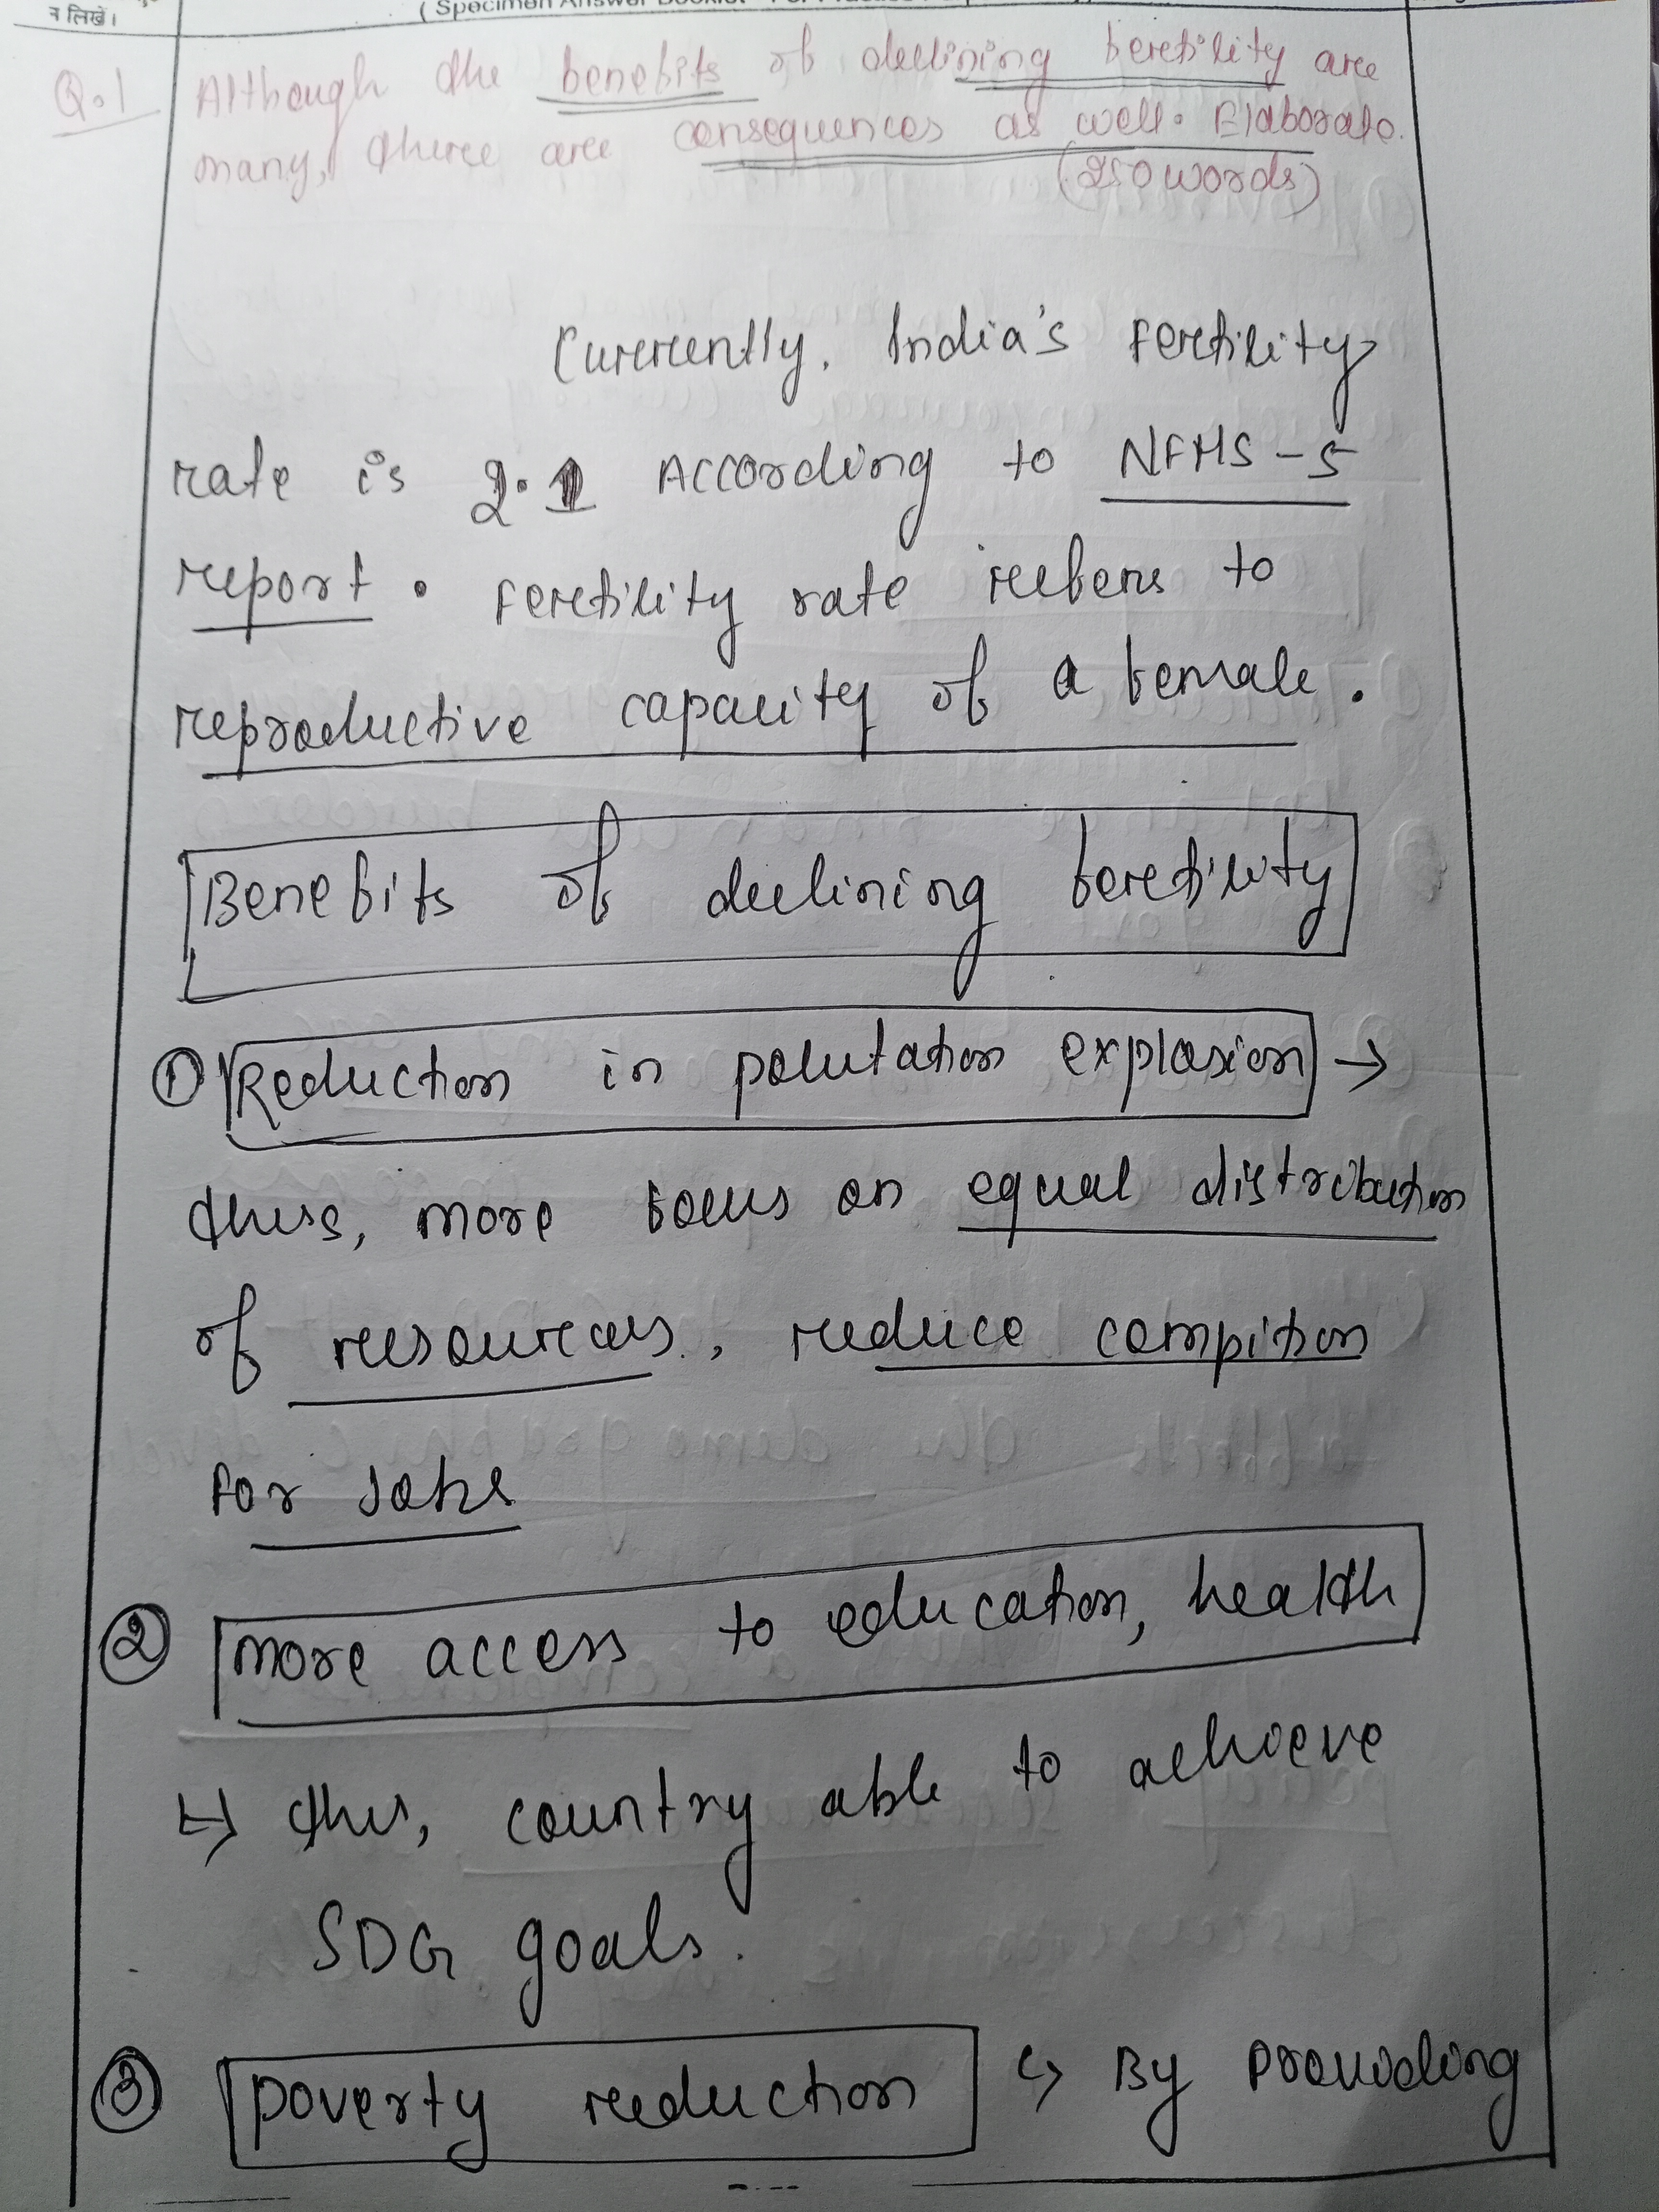 न लिखें।
(Specimen Answer Booklet - For Practice
Q.1 Although the benefits of declining fertility are
many, there are consequences as well. Elaborate.
(250 words)
Currently, India's fertility
rate is 2.1 According to NFHS-5
report. Fertility rate refers to
reproductive capacity of a female.
Benefits of declining fertility
① Reduction in polutation explosion →
thus, more focus on equal distribution
of resources, reduce compition
For Jobs
② more access to education, health
↳ thus, country able to achieve
SDG goals.
③ poverty reduction ↳ By providing